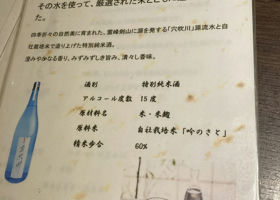 その水を使って、厳選された米とともに
た。
四季折々の自然美に育まれた、霊峰剣山に源を発する「穴吹川」源流水と自
社栽培米で造り上げた特別純米酒。
澄みやかな香り、みずみずしき旨み、清々し香味。
酒別 特別純米酒
アルコール度数 15度
原材料名 米・米麹
原料米 自社栽培米「吟のさと」
精米歩合 60%